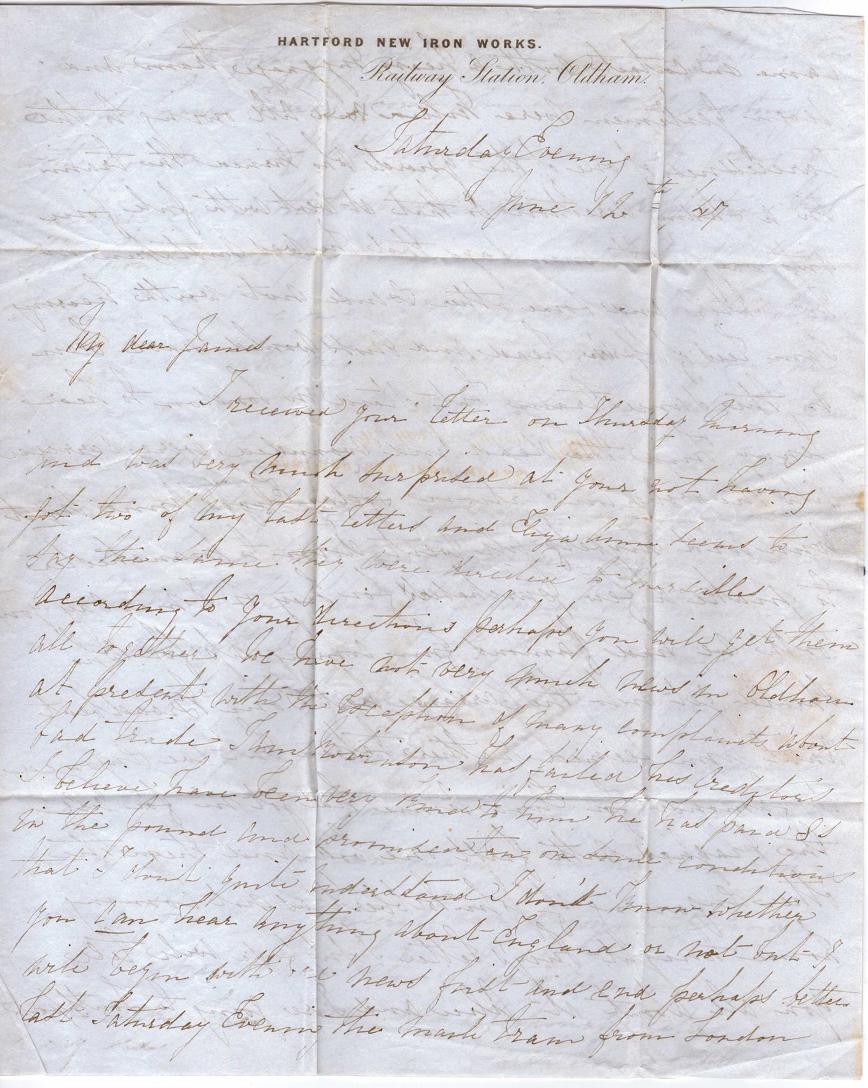 HARTFORD NEW IRON WORKS.
Railway Station, Oldham.
Saturday Evening
June 12th, 47
My dear James
I received your letter on Thursday morning
and was very much surprised at your not having
got two of my last letters and Eliza Ann seems to
say the same they were directed to marsilles
according to your directions perhaps you will get them
all together We have not very much news in Oldham
at present with the exception of many complaints about
bad trade Robinson has failed his creditors
I believe have been very kind to him he has paid 8s
in the pound and promised on some conditions
that I dont quite understand I don't know whether
you can hear anything about England or not but I
will begin with news first and end perhaps better
last Saturday Evening the mail train from London